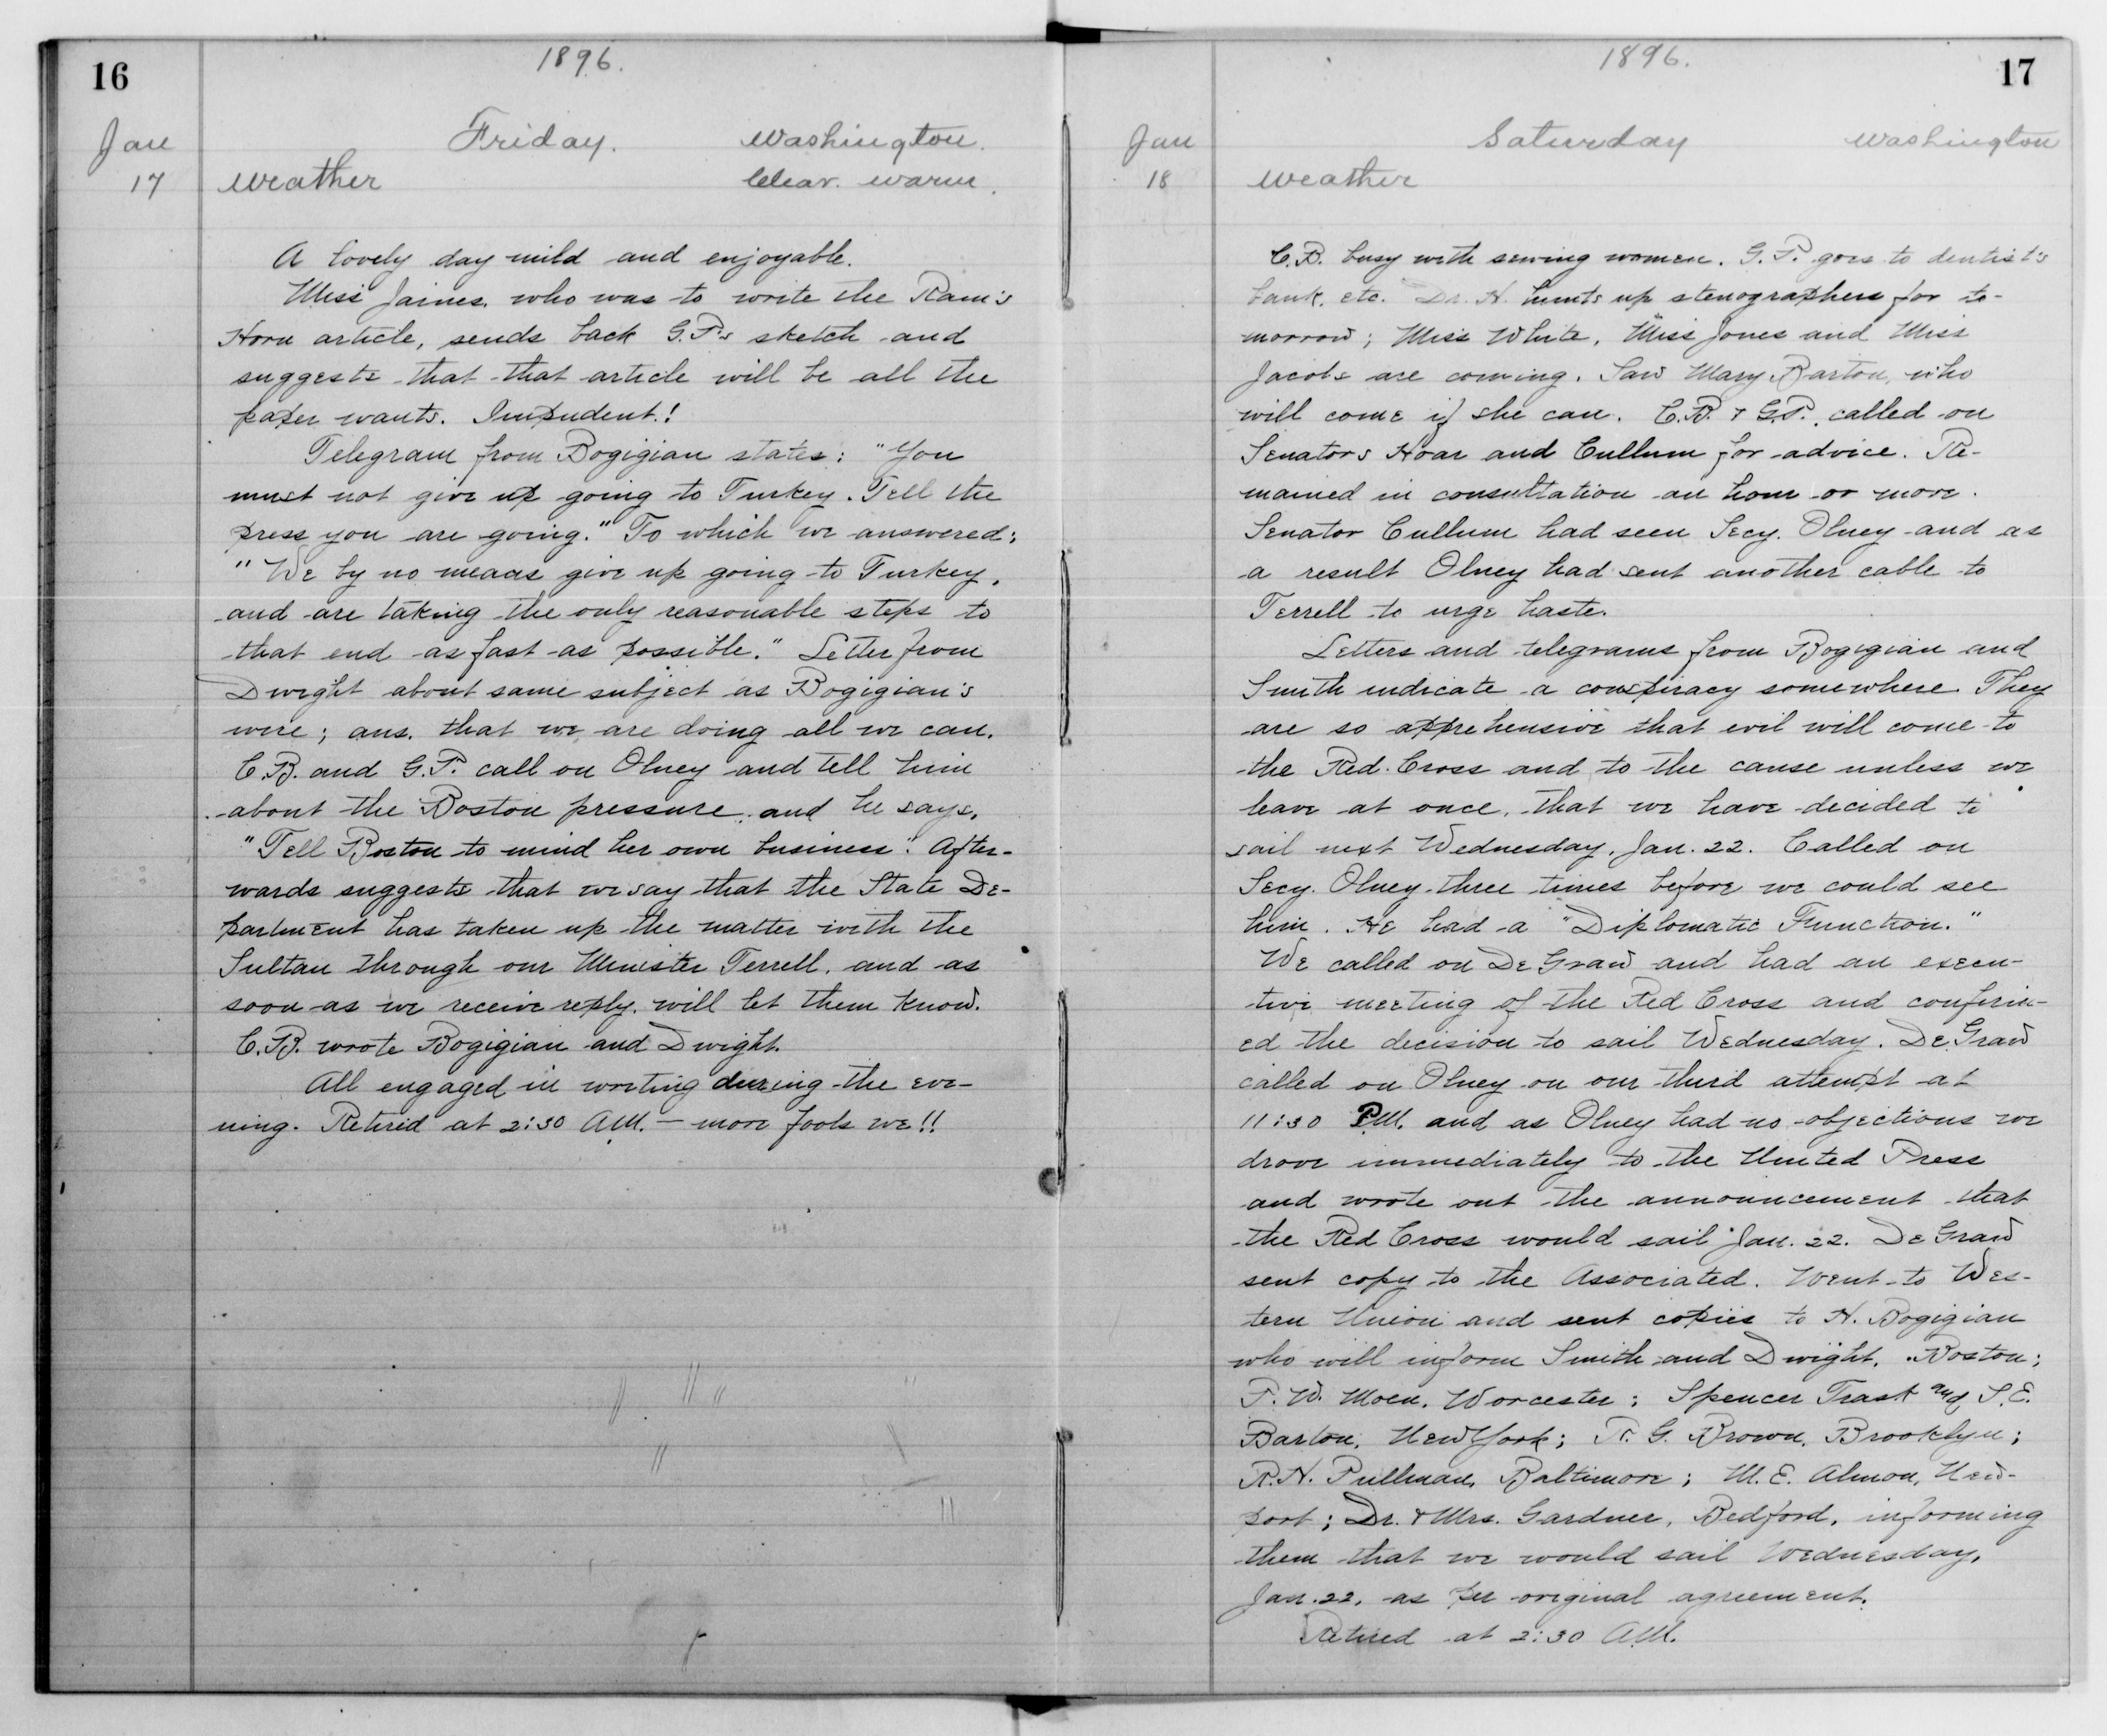 16
1896.
Jan
Friday. Washington.
17
Weather Clear. Warm.
A lovely day mild and enjoyable.
Miss Jaines, who was to write the Ram's
Horn article, sends back G.P.'s sketch and
suggests that that article will be all the
paper wants. Impudent!
Telegram from Bogigian states: "You
must not give up going to Turkey. Tell the
press you are going." To which we answered:
"We by no means give up going to Turkey,
and are taking the only reasonable steps to
that end as fast as possible." Letter from
Dwight about same subject as Bogigian's
wire; ans. that we are doing all we can.
C.B. and G.P. call on Olney and tell him
about the Boston pressure, and he says,
"Tell Boston to mind her own business". After-
wards suggests that we say that the State De-
partment has taken up the matter with the
Sultan through our Minister Terrell, and as
soon as we receive reply, will let them know.
C.B. wrote Bogigian and Dwight.
All engaged in writing during the eve-
ning. Retired at 2:30 A.M. — more fools we!!
17
1896.
Jan
Saturday Washington
18
Weather
C.B. busy with sewing women. G.P. goes to dentist's
bank, etc. Dr. H. hunts up stenographers for to-
morrow; Miss White, Miss Jones and Miss
Jacobs are coming. Saw Mary Barton, who
will come if she can. C.B. & G.P. called on
Senators Hoar and Cullum for advice. Re-
mained in consultation an hour or more.
Senator Cullum had seen Secy. Olney and as
a result Olney had sent another cable to
Terrell to urge haste.
Letters and telegrams from Bogigian and
Smith indicate a conspiracy somewhere. They
are so apprehensive that evil will come to
the Red Cross and to the cause unless we
leave at once, that we have decided to
sail next Wednesday, Jan. 22. Called on
Secy. Olney three times before we could see
him. He had a "Diplomatic Function."
We called on De Graw and had an execu-
tive meeting of the Red Cross and confirm-
ed the decision to sail Wednesday. De Graw
called on Olney on our third attempt at
11:30 P.M. and as Olney had no objections we
drove immediately to the United Press
and wrote out the announcement that
the Red Cross would sail Jan. 22. De Graw
sent copy to the Associated. Went to Wes-
tern Union and sent copies to H. Bogigian
who will inform Smith and Dwight, Boston;
P.W. Moen, Worcester; Spencer Trask and S.E.
Barton, New York; A. G. Brown, Brooklyn;
R.H. Pullman, Baltimore; M.E. Almon, New-
port; Dr. & Mrs. Gardner, Bedford, informing
them that we would sail Wednesday,
Jan. 22, as per original agreement.
Retired at 2:30 A.M.